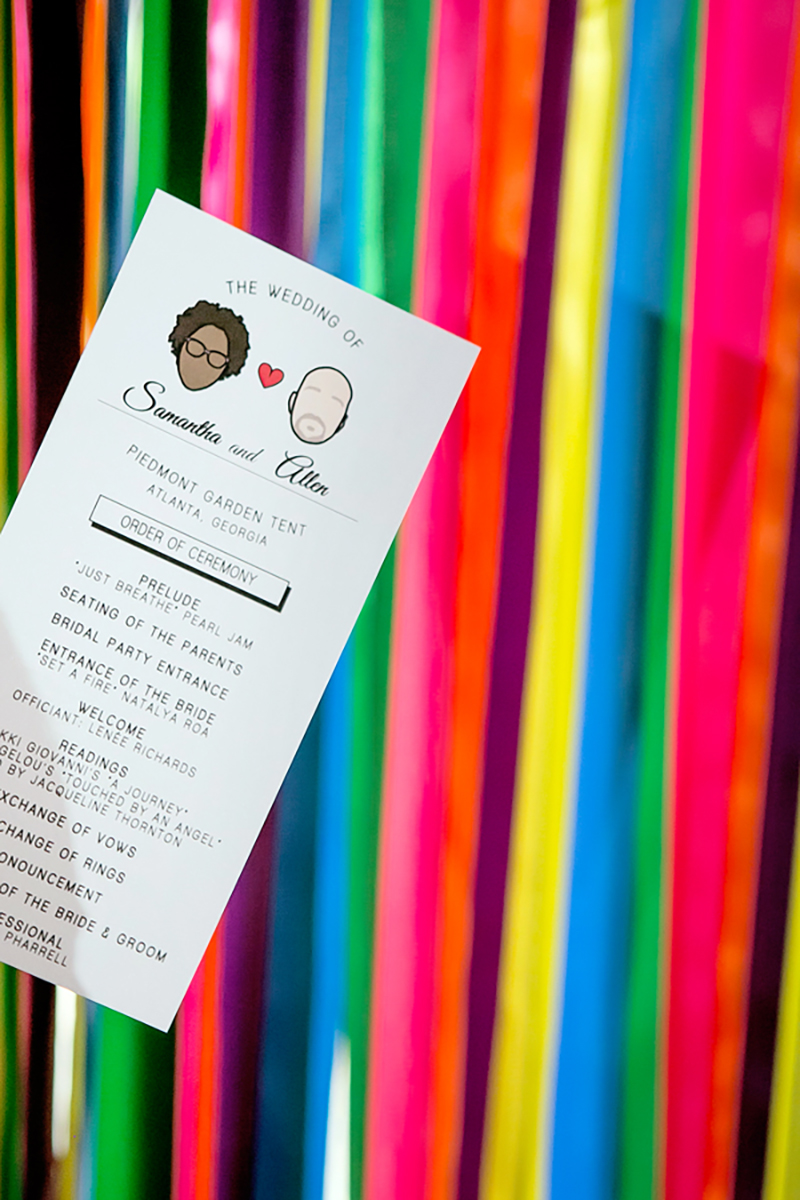 THE WEDDING OF
Samantha and Allen
PIEDMONT GARDEN TENT
ATLANTA, GEORGIA
ORDER OF CEREMONY
PRELUDE
"JUST BREATHE" PEARL JAM
SEATING OF THE PARENTS
BRIDAL PARTY ENTRANCE
ENTRANCE OF THE BRIDE
"SET A FIRE" NATALYA ROA
WELCOME
OFFICIANT: LENEE RICHARDS
READINGS
GIOVANNI'S "A JOURNEY"
"TOUCHED BY AN ANGEL"
BY JACQUELINE THORNTON
OF VOWS
OF RINGS
OF THE BRIDE & GROOM
PHARRELL